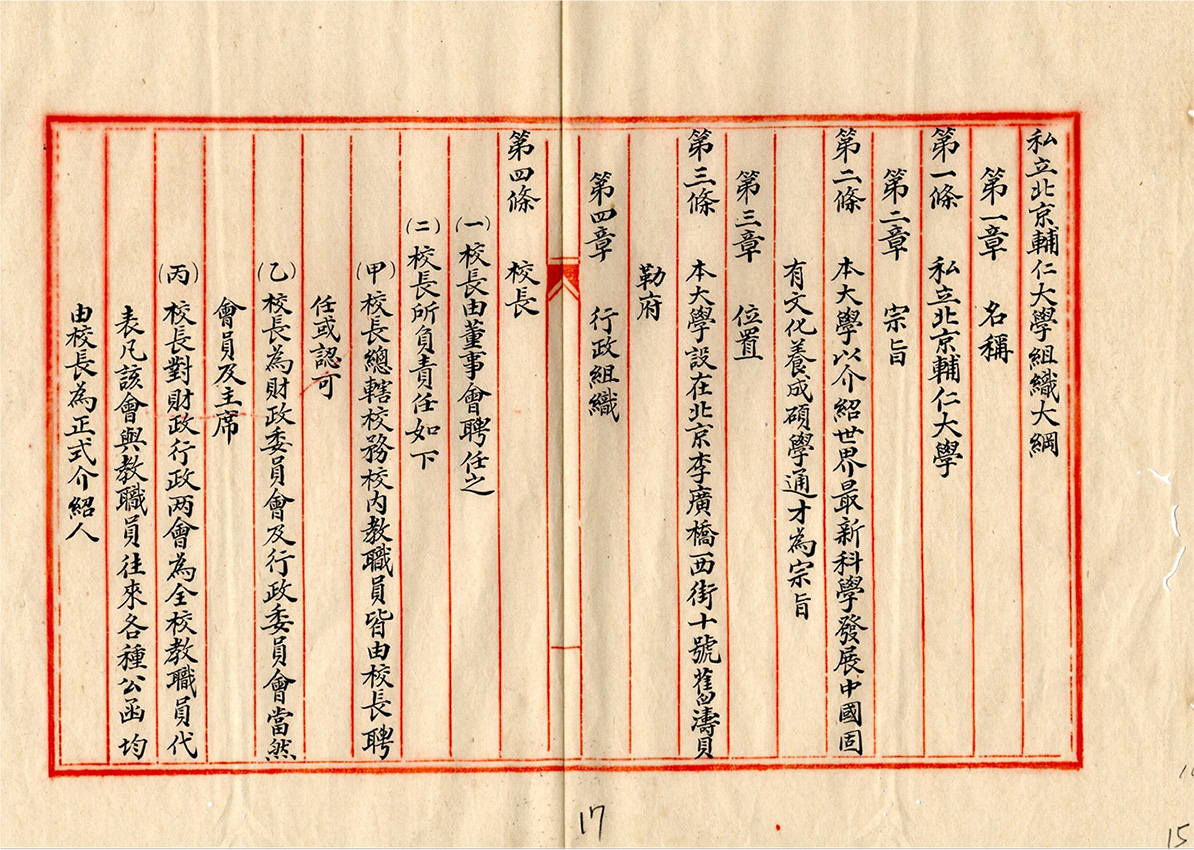 私立北京輔仁大學組織大綱
第一章　名稱
第一條　私立北京輔仁大學
第二章　宗旨
第二條　本大學以介紹世界最新科學發展中國固
有文化養成碩學通才為宗旨
第三章　位置
第三條　本大學設在北京李廣橋西街十號舊濤貝
勒府
第四章　行政組織
第四條　校長
(一)校長由董事會聘任之
(二)校長所負責任如下
(甲)校長總轄校務校内教職員皆由校長聘
任或認可
(乙)校長為財政委員會及行政委員會當然
會員及主席
(丙)校長對財政行政两會為全校教職員代
表凡該會與教職員往來各種公函均
由校長為正式介紹人
17
15